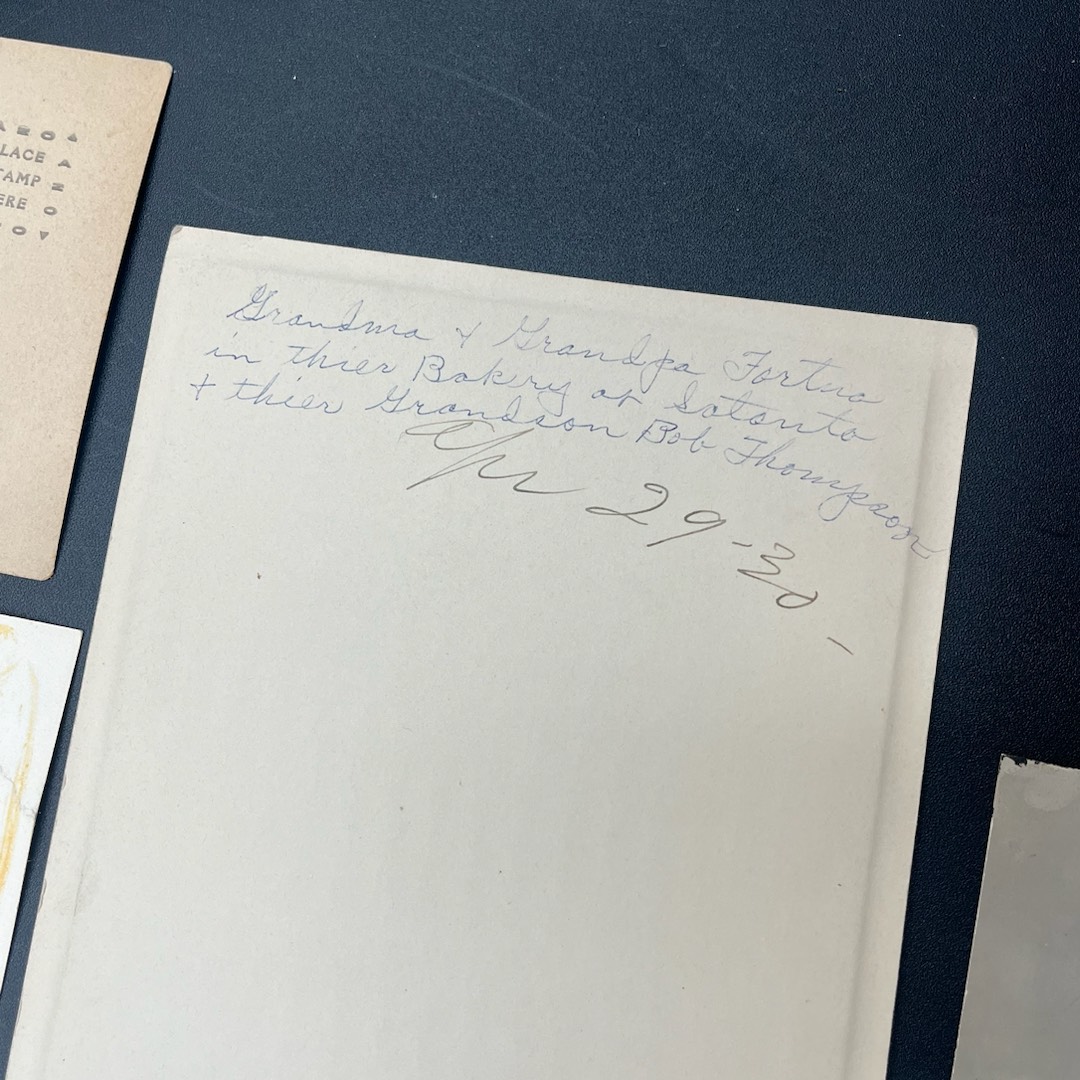 LACE
TAMP
ERE
Grandma & Grandpa Fortna
in thier Bakry at Satanta
& thier Grandson Bob Thompson
Apr 29-30-